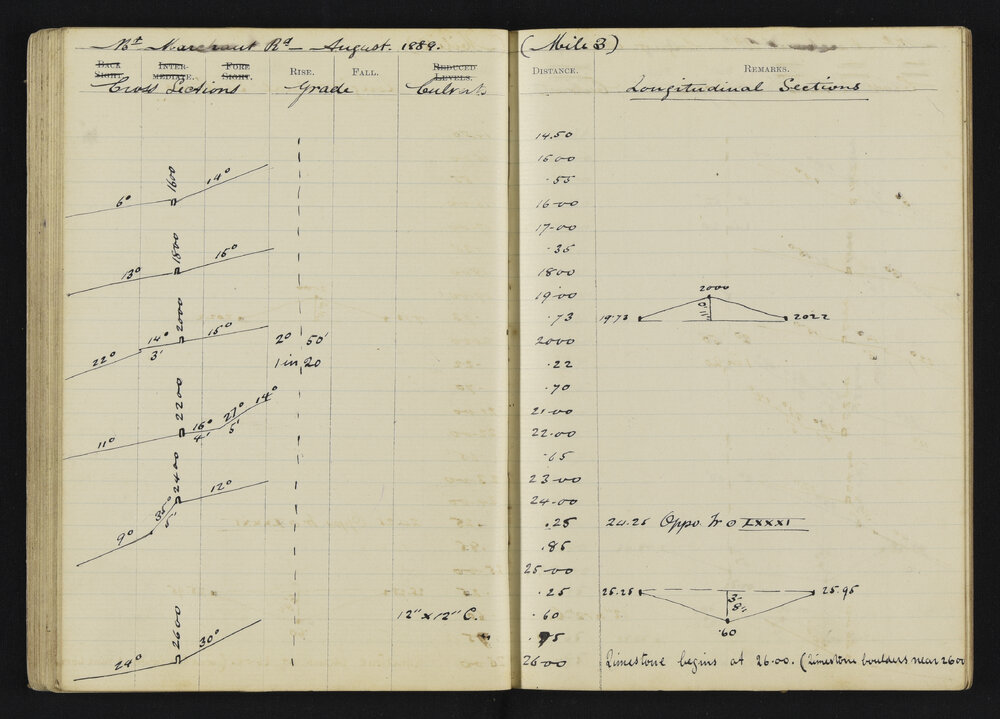 Mt Marchant Rd - August. 1889.
BACK SIGHT. INTER-MEDIATE. FORE SIGHT. RISE. FALL. REDUCED LEVELS.
Cross Sections Grade Culverts
6° 1600 14°
13° 1800 15°
22° 14° 3' 2000 15°
2° 50'
1 in 20
11° 2200 16° 4' 27° 5' 14°
9° 35° 5' 2400 12°
12" x 12" C.
24° 2600 30°
(Mile 3)
DISTANCE. REMARKS.
Longitudinal Sections
14.50
1500
.55
16-00
17-00
.35
1800
19.00
2000
.73 19.73 0' 11" 2022
2000
.22
.70
21-00
22.00
.65
23-00
24-00
.25 24.25 Oppo. Tr O LXXXI
.85
25-00
.25 25.25 3- 8" 25.95
.60 .60
.95
26-00 Limestone begins at 26.00. (Limestone boulders near 2600